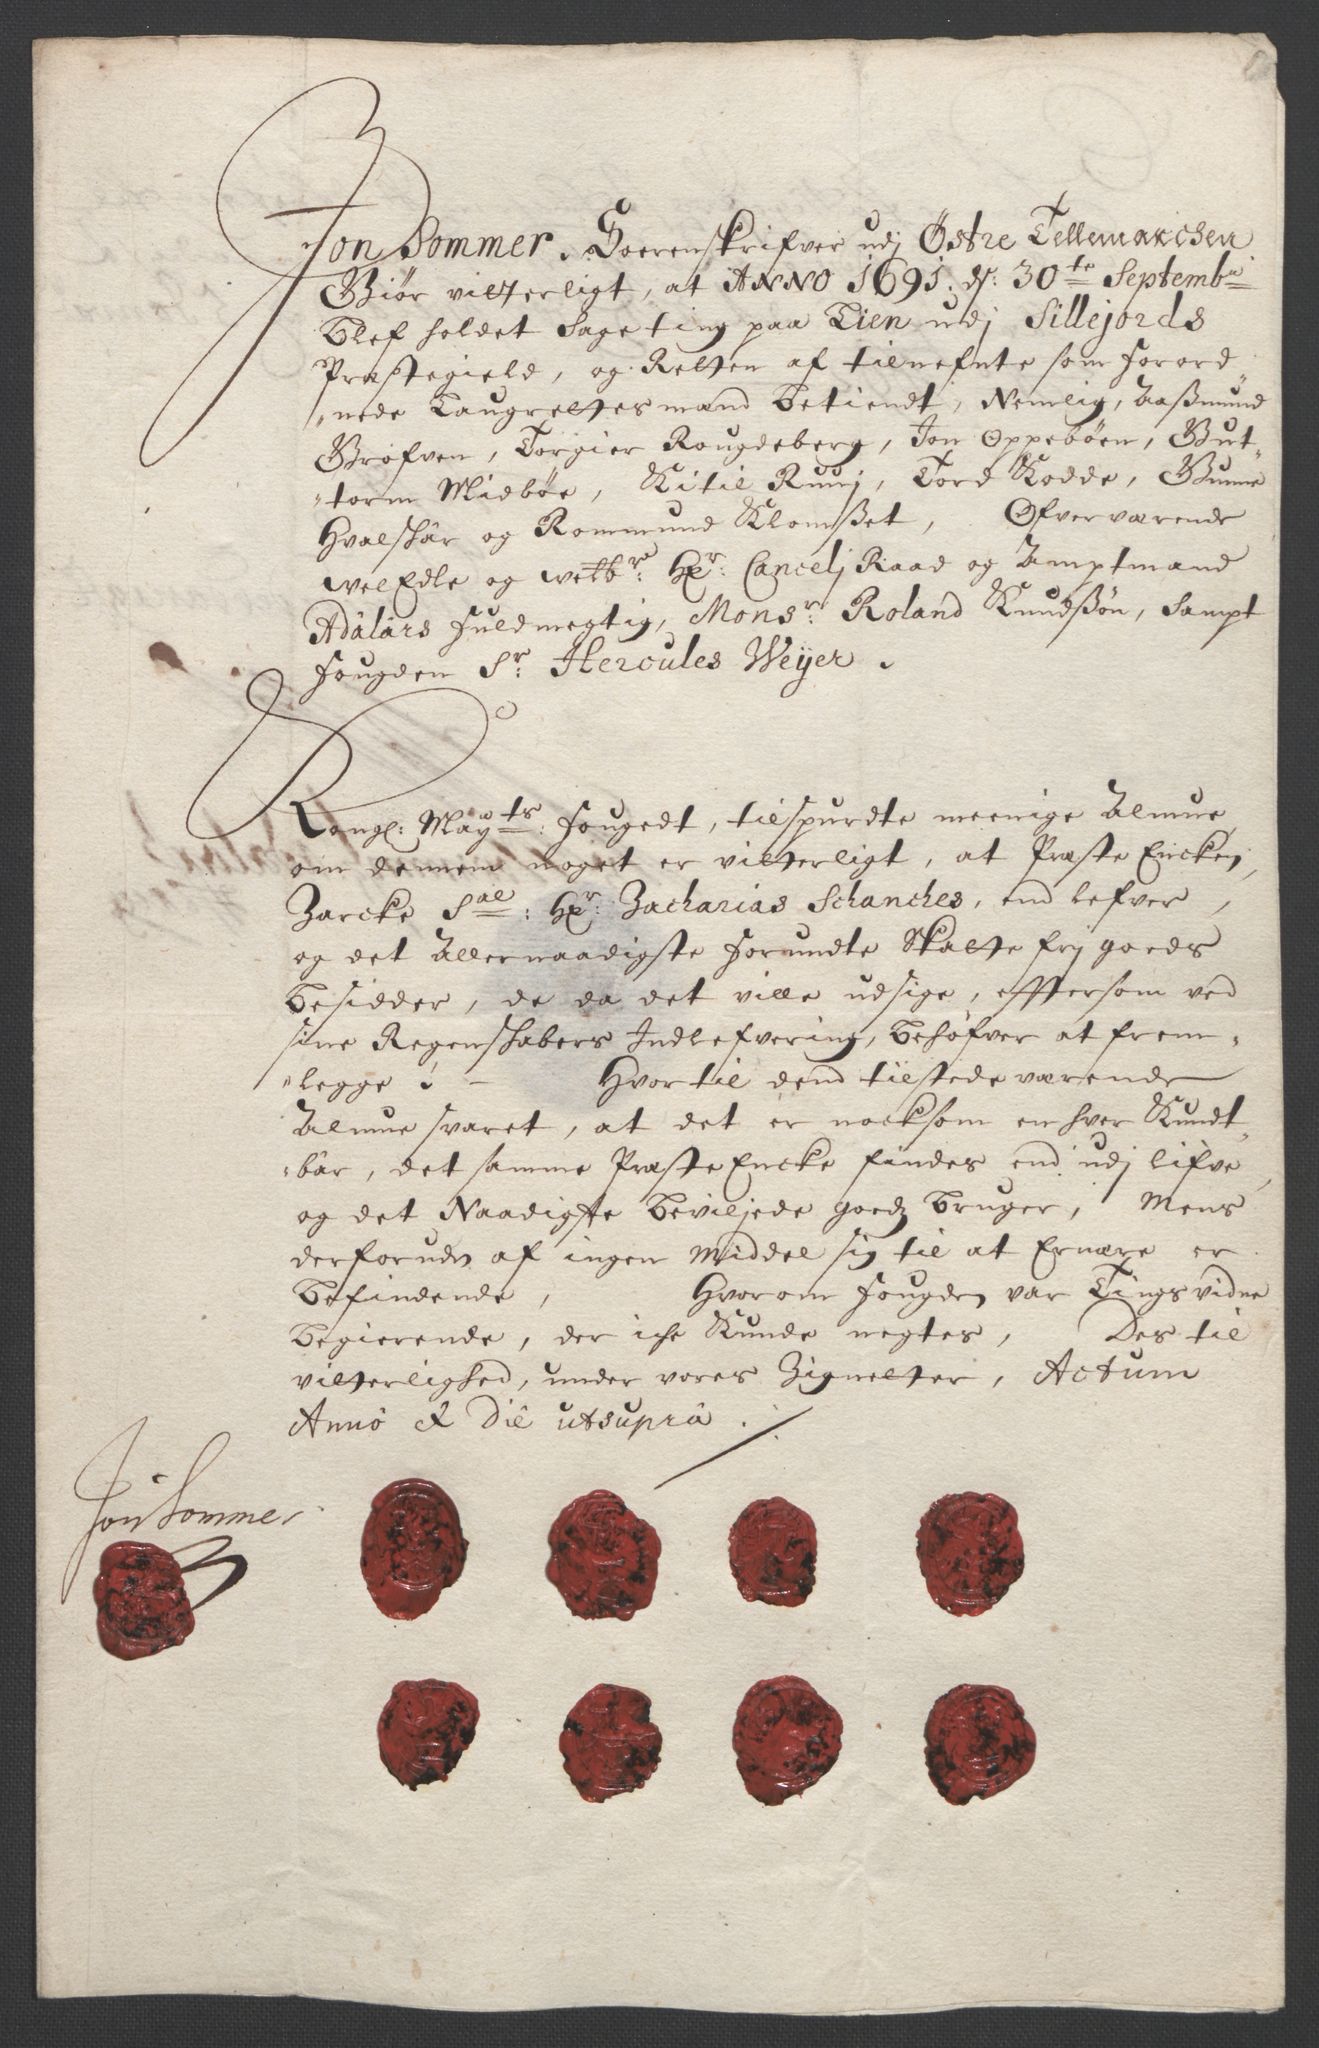 Jon Sommer. Soerenskrifver udj Østre Tellemarchen
Giør vitterligt, at ANNO 1691. d: 30te Septembr
blef holdet Sage ting paa Tien udj Sillejords
Præstegield, og Retten af tilnefnte som forord„
„nede Laugrettesmænd betiendt, Nemlig, Aaßmund
Grofven, Torgier Rougdeberg, Jon Oppebøen, Gut„
„torm Midbøe, Kitil Ruuj, Tord Kodde, Gunne
Hvalskår og Rommund Klomßet, Ofverværende
welEdle og welbr: Hr: Cancelj Raad og Amptmand
Adelårs fuldmegtig, Monsr: Roland Knudßøn, Sampt
fougden Sr: Hercules Weÿer.
Kongl: Mayts: fougedt, tilspurdte meenige Almue
om dennem noget er vitterligt, at Præste Encken,
Zarcke Sal: Hr: Zacharias Schanches, end lefver,
og det Allernaadigste forundte Skatte frj goeds
besidder, de da det ville udsige, efftersom ved
sine Regenskabers Indlefvering, behøfver at frem„
„legge: - Hvortil dend tilstedeværende
Almue svaret, at det er nocksom enhver Kundt„
„bar, det samme Præste Encke findes end udj lifve,
og det Naadigste beviljede goedz bruger, Mens
derforudn af ingen Middel sig til at Ernære er
befindende, Hvorom fougden var Tingsvidne
begierende, der iche Kunde negtes, Des til
vitterlighed, under vores Zignetter, Actum
Anno & Die utsupra.
Jon Sommer